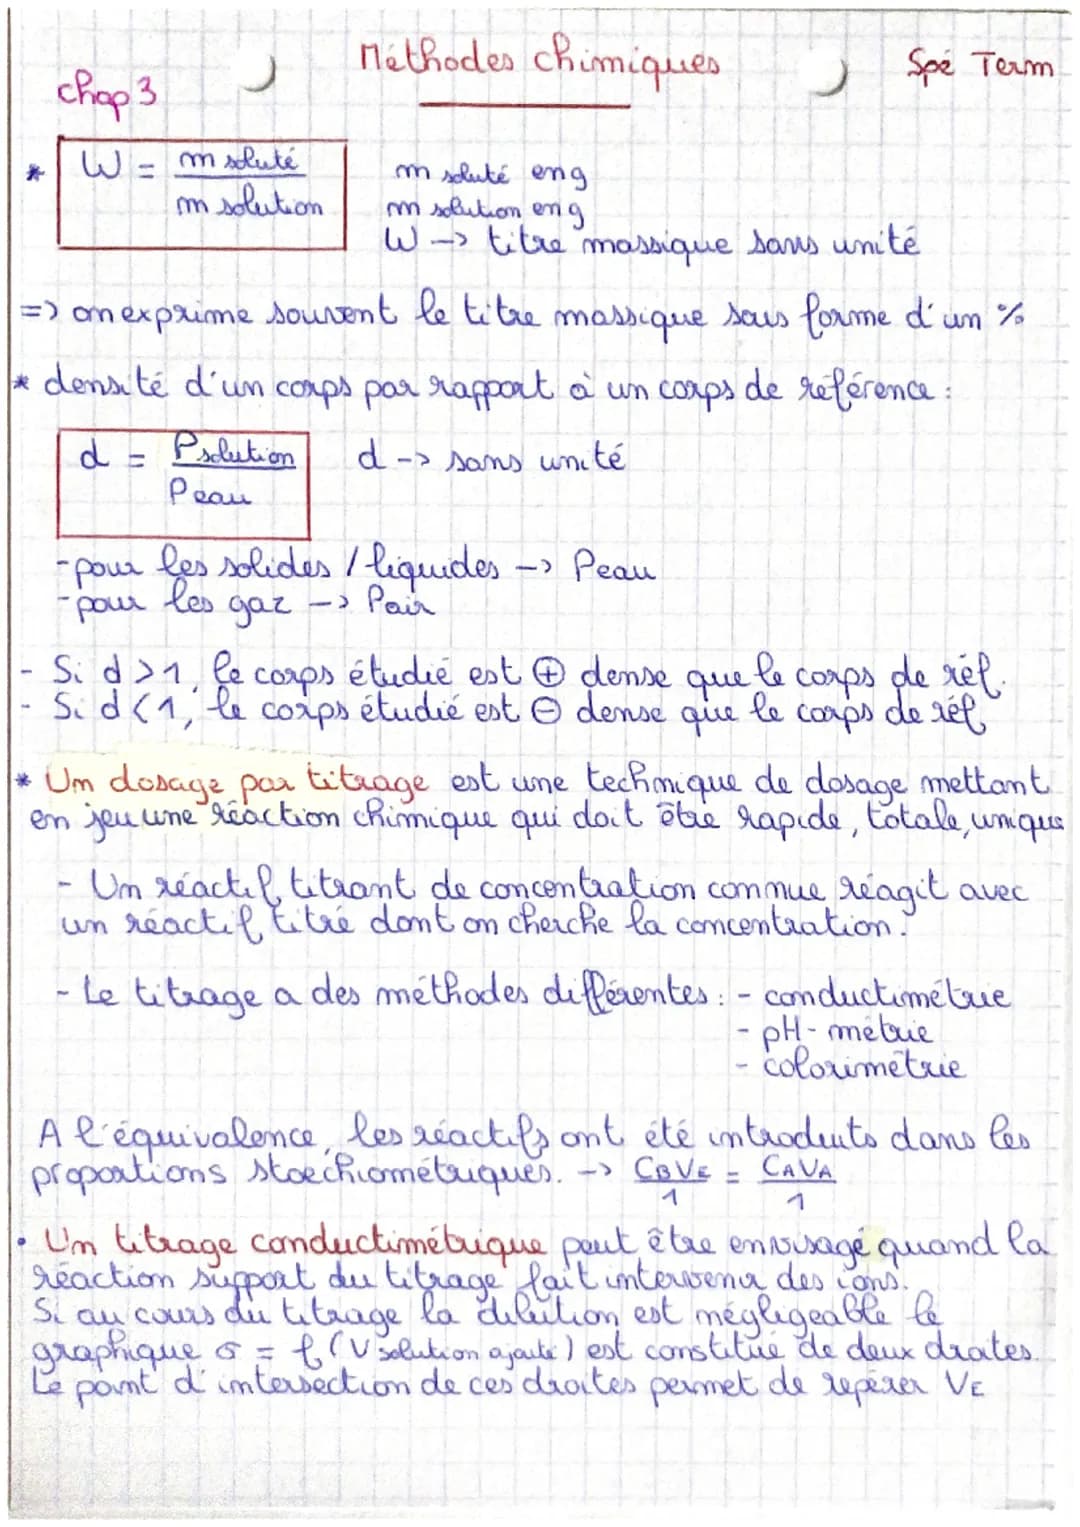 Méthodes chimiques
Spé Term
chap 3
* W = m soluté / m solution
m soluté en g
m solution en g
W -> titre massique sans unité
=> on exprime souvent le titre massique sous forme d'un %
* densité d'un corps par rapport à un corps de référence :
d = ρ solution / ρ eau
d -> sans unité
- pour les solides / liquides -> ρ eau
- pour les gaz -> ρ air
- Si d > 1, le corps étudié est ⊕ dense que le corps de réf.
- Si d < 1, le corps étudié est ⊖ dense que le corps de réf
* Un dosage par titrage est une technique de dosage mettant
en jeu une réaction chimique qui doit être rapide, totale, unique
- Un réactif titrant de concentration connue réagit avec
un réactif titré dont on cherche la concentration.
- Le titrage a des méthodes différentes : - conductimétrie
- pH-métrie
- colorimétrie
A l'équivalence, les réactifs ont été introduits dans les
proportions stoechiométriques. -> CBVE / 1 = CAVA / 1
• Un titrage conductimétrique peut être envisagé quand la
réaction support du titrage fait intervenir des ions.
Si au cours du titrage la dilution est négligeable le
graphique σ = f (V solution ajouté) est constitué de deux droites.
Le point d'intersection de ces droites permet de repérer VE